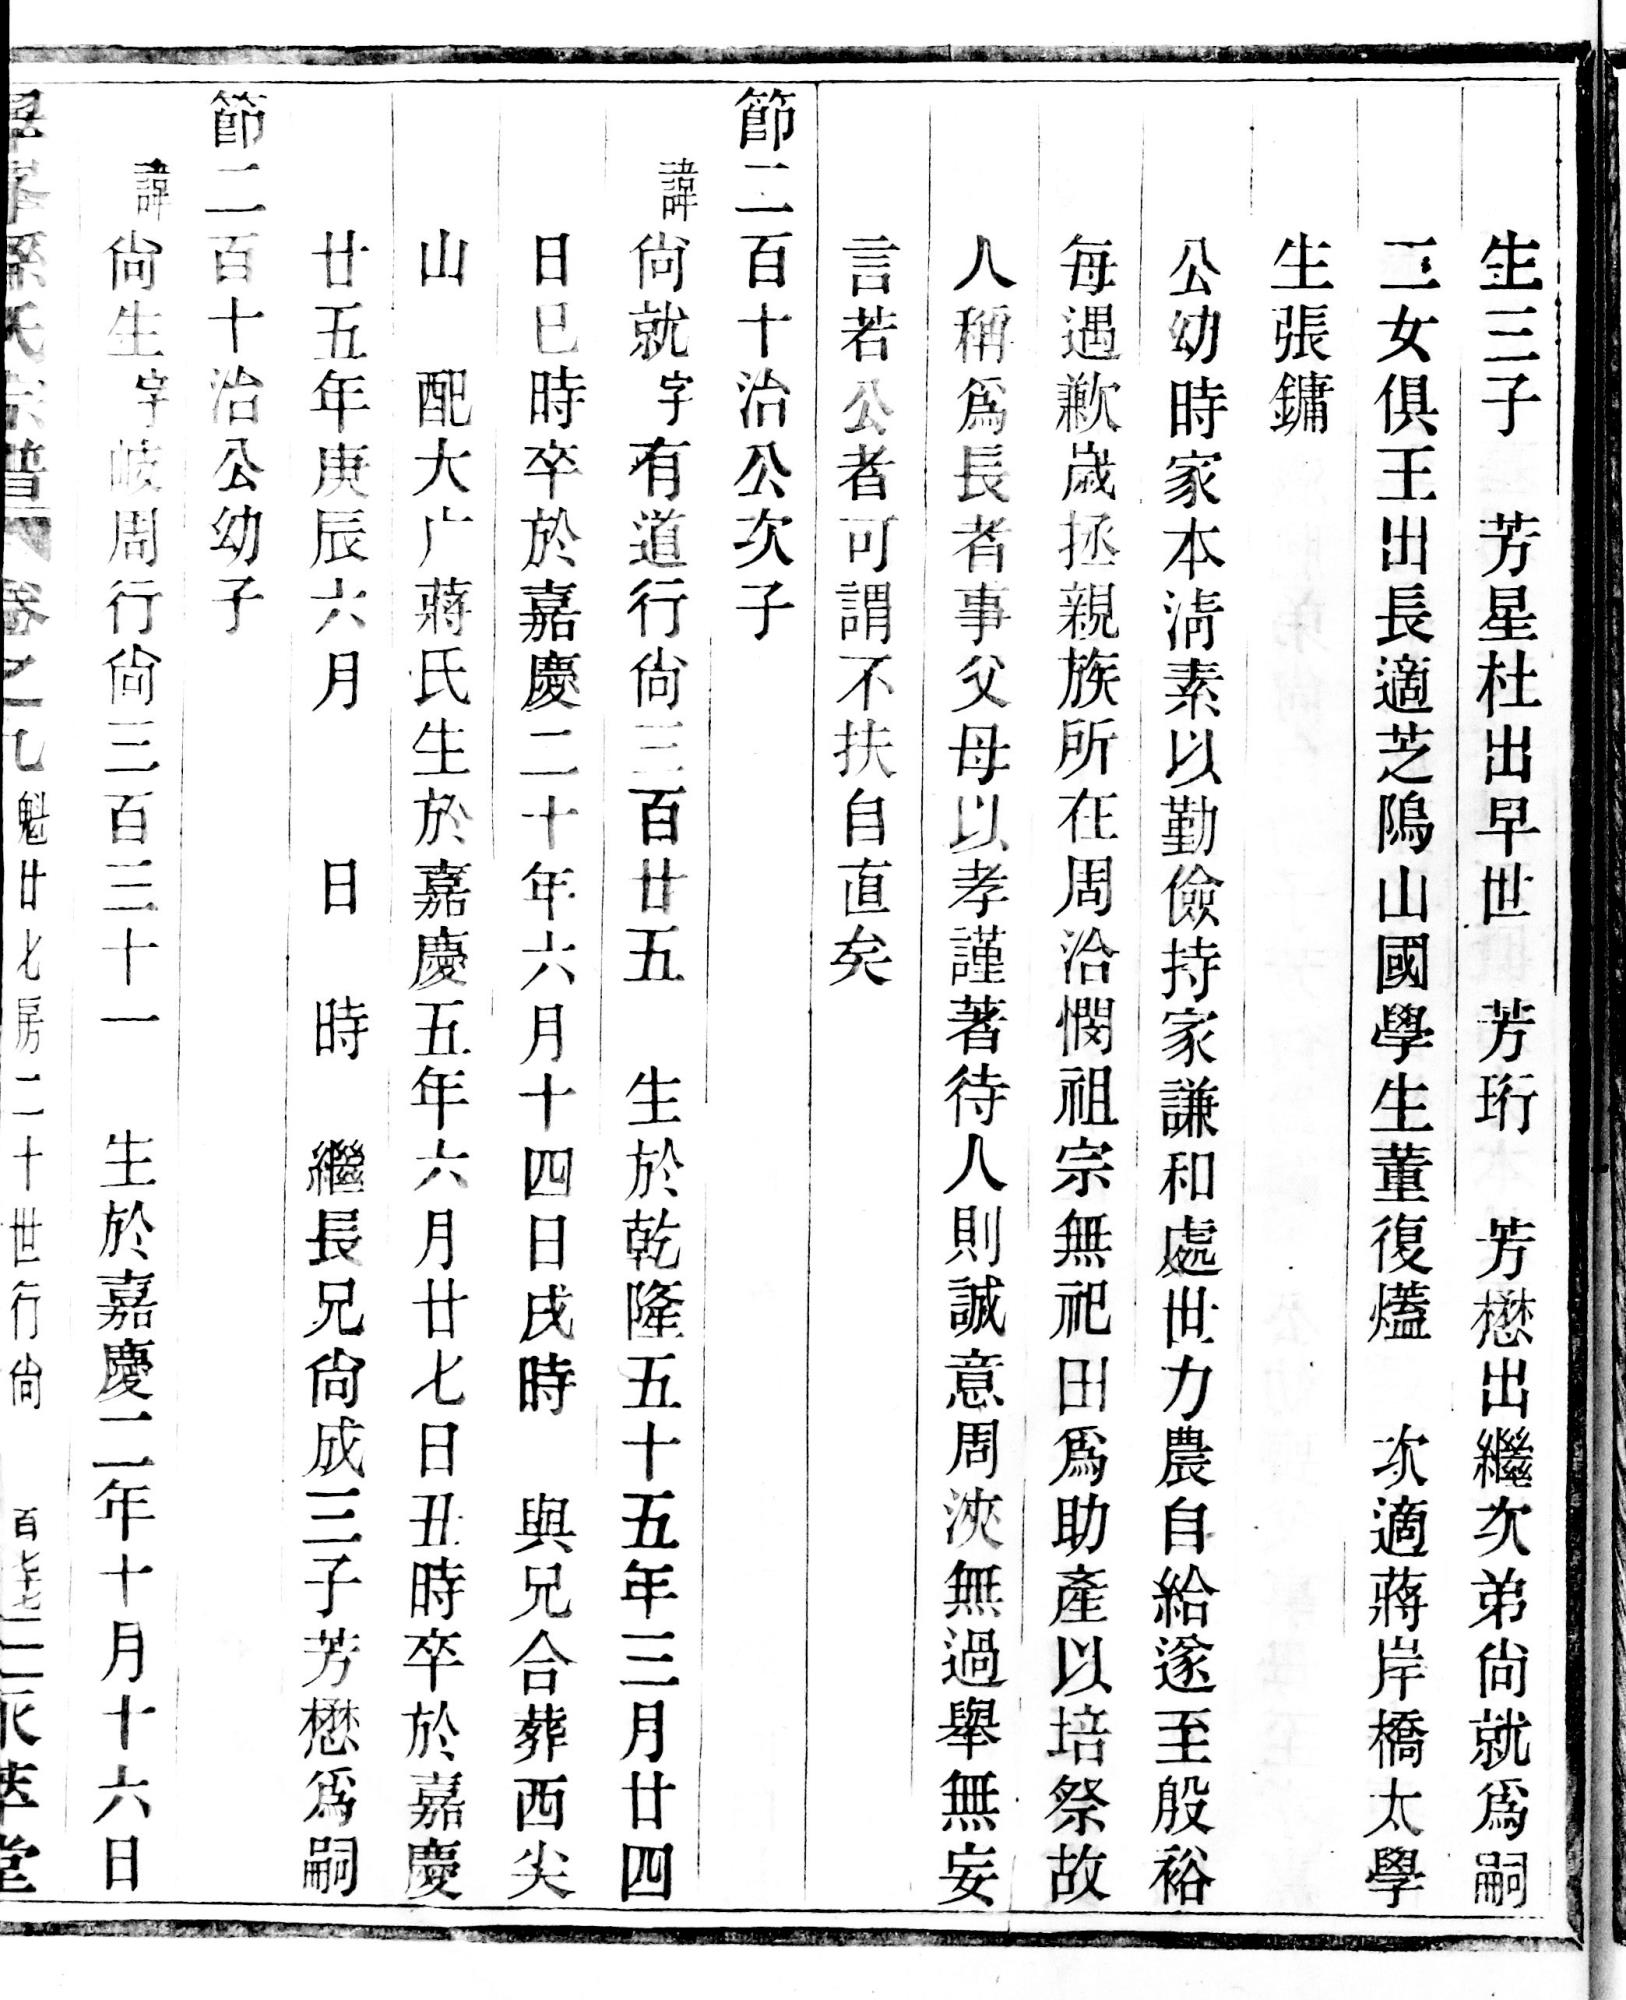 生三子　芳星杜出早世　芳珩　芳懋出繼次弟尙就爲嗣
二女俱王出長適芝隝山國學生董復爐　次適蔣岸橋太學
生張鏞
公幼時家本淸素以勤儉持家謙和處世力農自給遂至殷裕
每遇歉歲拯親族所在周洽憫祖宗無祀田爲助產以培祭故
人稱爲長者事父母以孝謹著待人則誠意周浹無過舉無妄
言若公者可謂不扶自直矣
節二百十治公次子
諱尙就字有道行尙三百廿五　生於乾隆五十五年三月廿四
日巳時卒於嘉慶二十年六月十四日戌時　與兄合葬西尖
山　配大广蔣氏生於嘉慶五年六月廿七日丑時卒於嘉慶
廿五年庚辰六月　日　時　繼長兄尙成三子芳懋爲嗣
節二百十治公幼子
諱尙生字岐周行尙三百三十一　生於嘉慶二年十月十六日
孫氏宗譜　卷之九　魁廿七房二十世行尙　百七十七　萃堂